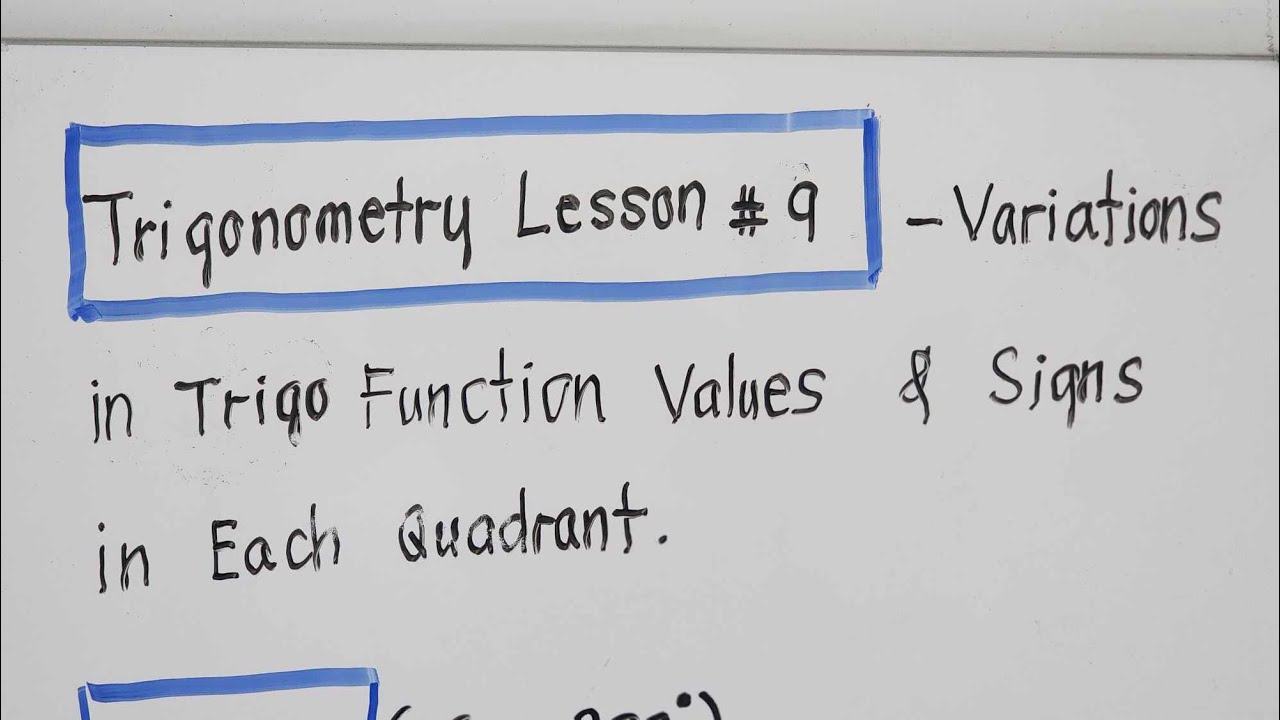 Trigonometry Lesson # 9 - Variations
in Trigo Function Values & Signs
in Each Quadrant.